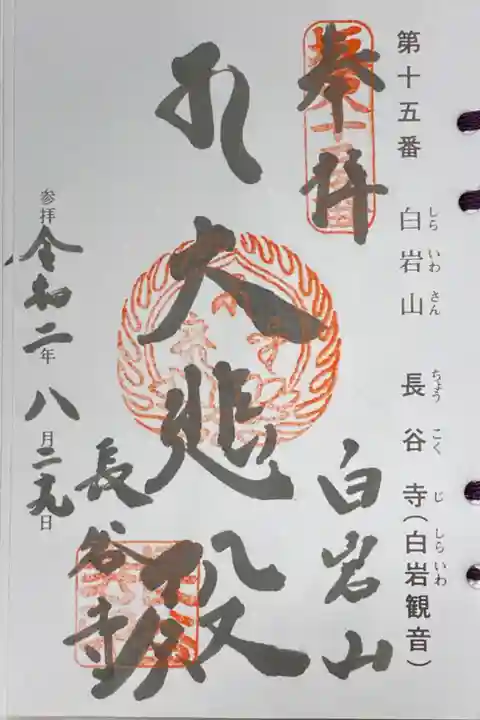 第十五番 白岩山 長谷寺(白岩観音)
しら いわ さん ちょう こく じ しら いわ
奉拝
白岩山
大悲殿
長谷寺
参拝 令和二年 八月二九日